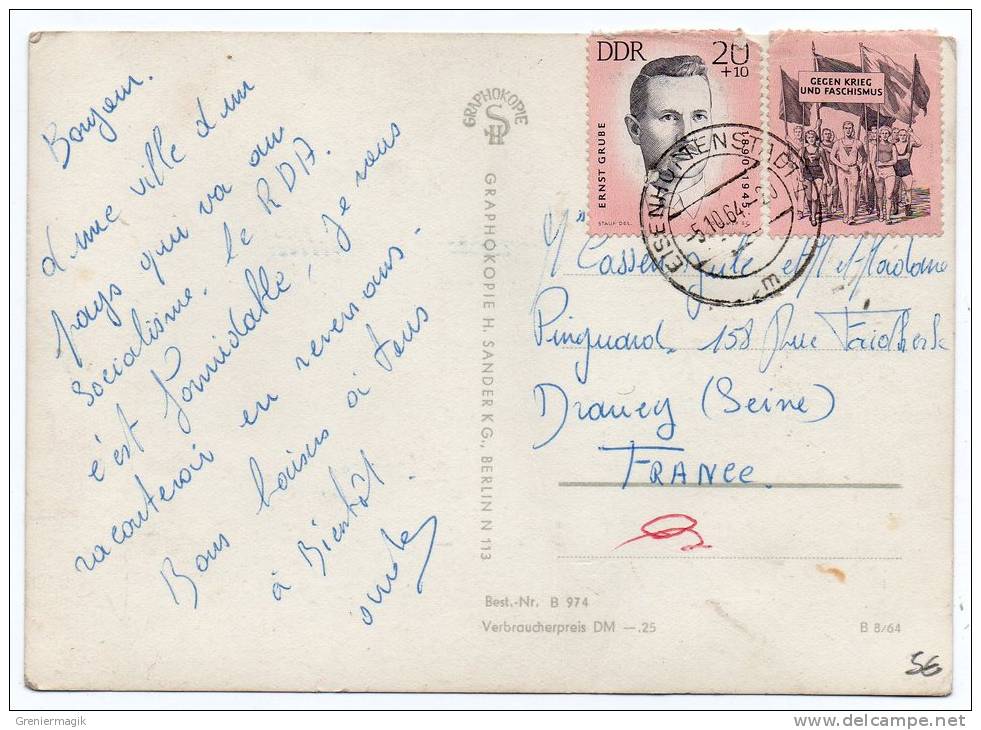 Bonjour.
d'une ville d'un
pays qui va au
Socialisme. le RDA.
c'est formidable! je vous
raconterai en revenons.
Bons baisers à tous
à Bientôt
GRAPHOKOPIE
GRAPHOKOPIE H. SANDER KG., BERLIN N 113
DDR 20
+10
ERNST GRUBE
1890-1945
STAUF DEL.
GEGEN KRIEG
UND FASCHISMUS
EISENHÜTTENSTADT
-5.10.64
et Madame
Pinguard. 158 Rue Faidherbe
Drancy (Seine)
FRANCE.
Best.-Nr. B 974
Verbraucherpreis DM —.25
B 8/64
56
Greniermagik
www.delcampe.net